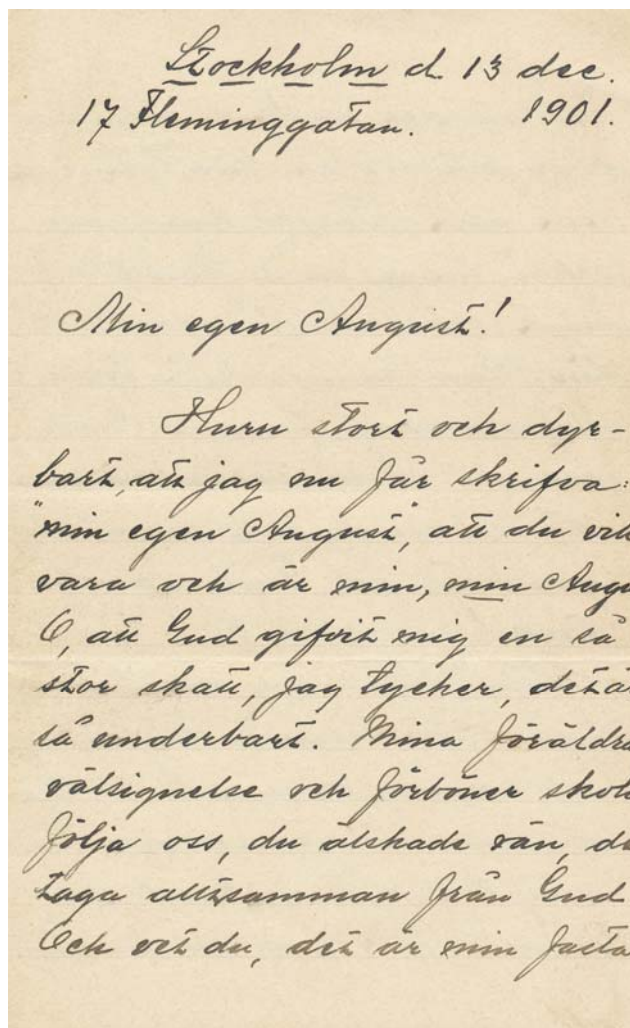 Stockholm d. 13 dec.
17 Fleminggatan. 1901.
Min egen August!
Huru stort och dyr-
bart, att jag nu får skrifva:
"min egen August", att du vill
vara och är min, min Augu
O, att Gud gifvit mig en så
stor skatt, jag tycker, det ä
så underbart. Mina föräldra
välsignelse och förböner skol
följa oss, du älskade vän, de
taga alltsamman från Gud
Och vet du, det är min fasta